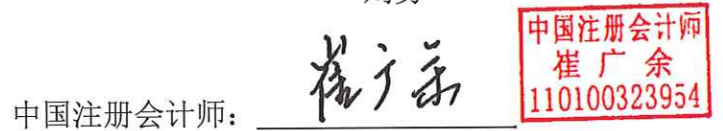 中国注册会计师：崔广余
中国注册会计师
崔广余
110100323954